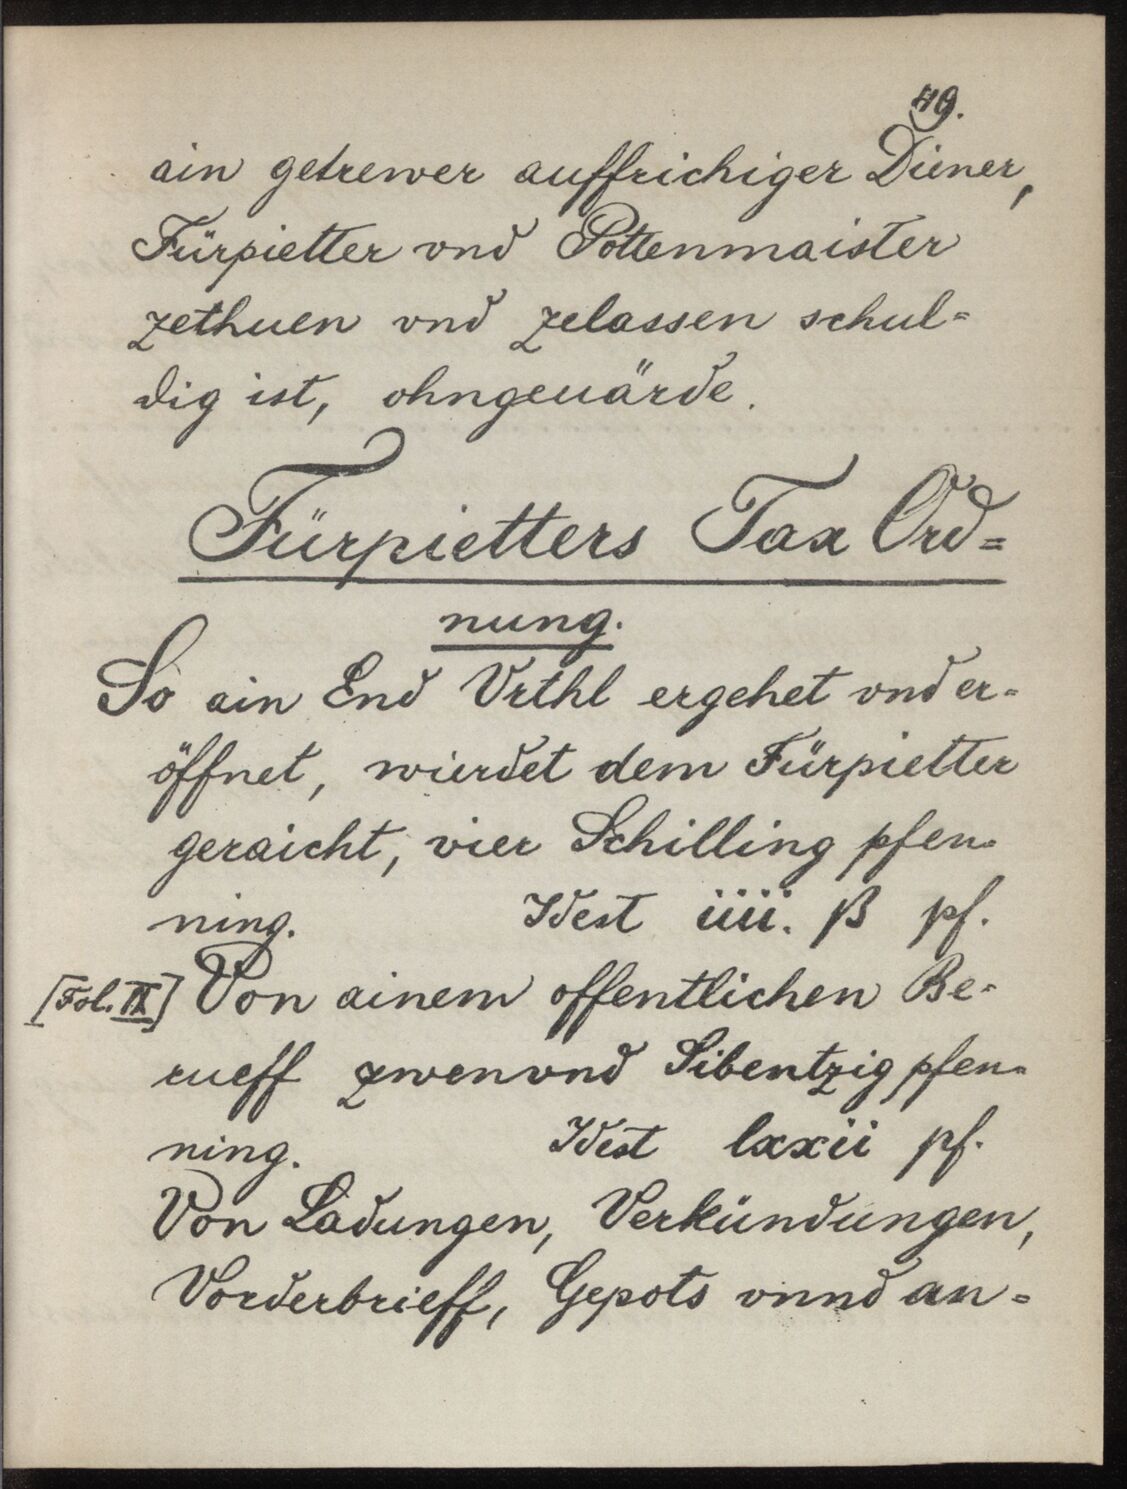 49.
ain getrewer auffrichiger Diener,
Fürpietter vnd Pottenmaister
zethuen vnd zelassen schul=
dig ist, ohngeuärde.
Fürpietters Tax Ord=
nung.
So ain End Vrthl ergehet vnd er=
öffnet, wierdet dem Fürpietter
geraicht, vier Schilling pfen=
ning. Idest iiii. ß pf.
[Fol. IX] Von ainem offentlichen Be=
rueff zwenvnd Sibentzig pfen=
ning. Idest lxxii pf.
Von Ladungen, Verkündungen,
Vorderbrieff, Gepots vnnd an=